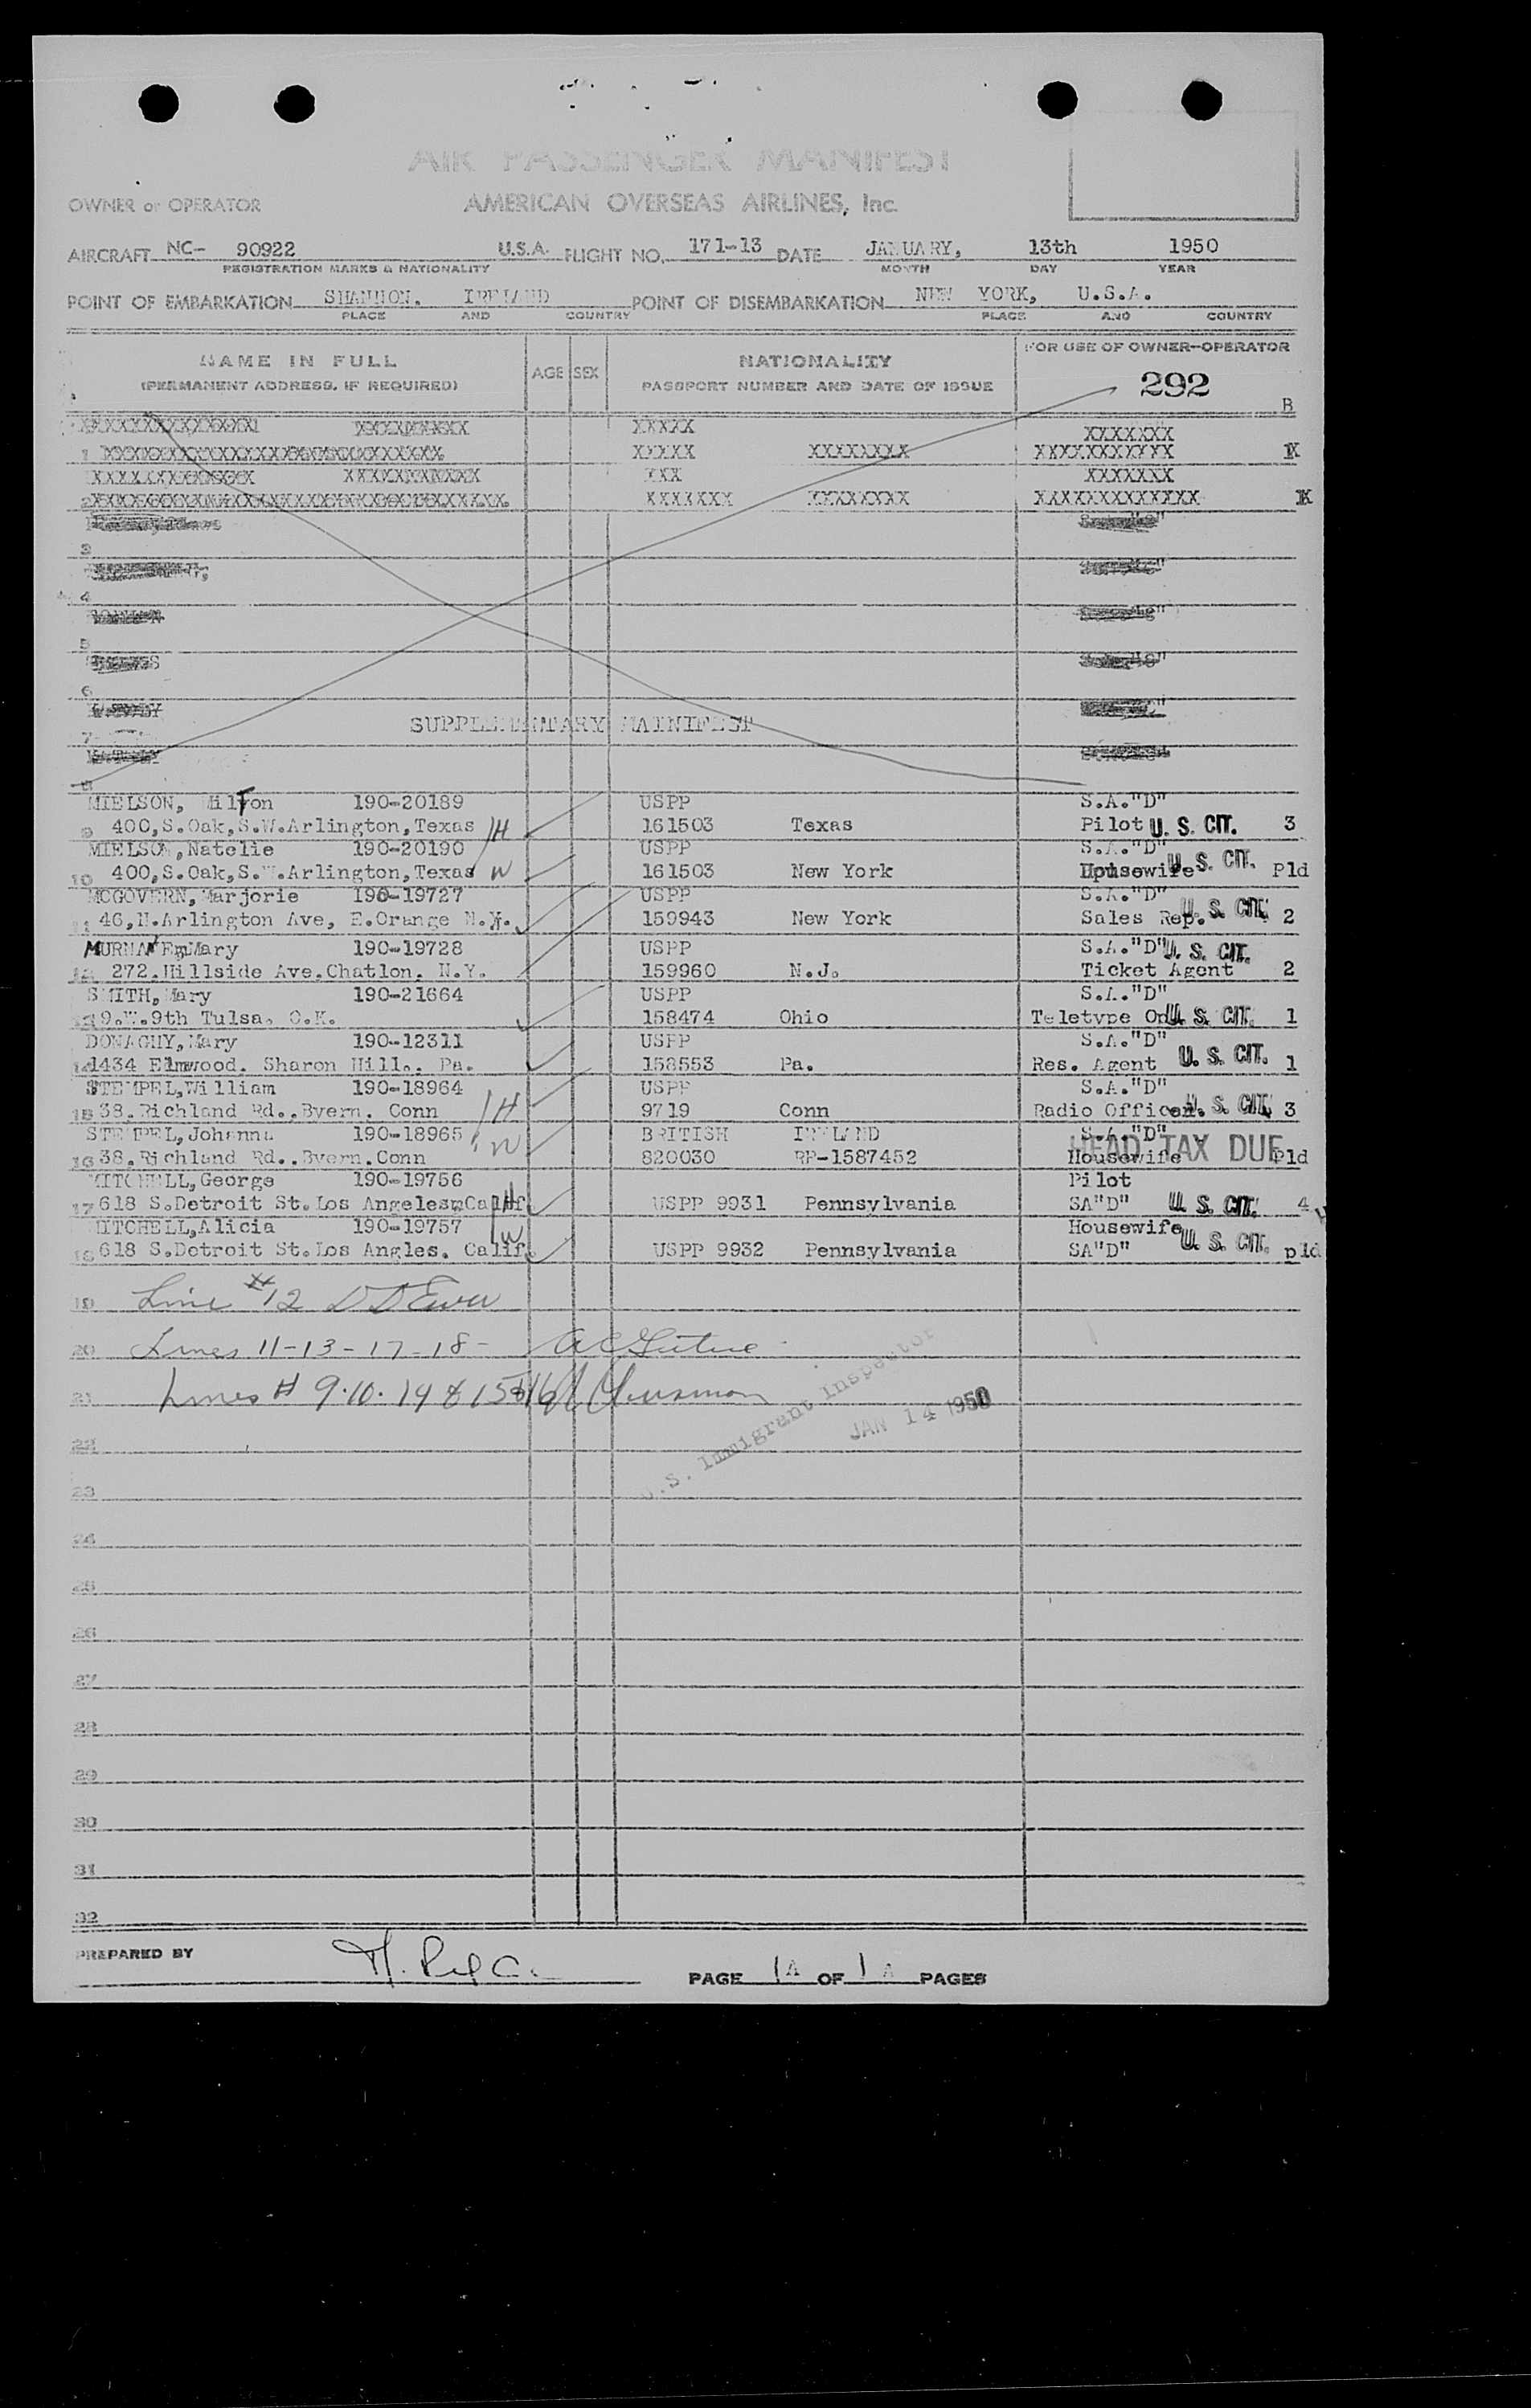 AIR PASSENGER MANIFEST
OWNER or OPERATOR AMERICAN OVERSEAS AIRLINES, Inc.
AIRCRAFT NC- 90922 U.S.A. FLIGHT NO. 171-13 DATE JANUARY, 13th 1950
REGISTRATION MARKS & NATIONALITY MONTH DAY YEAR
POINT OF EMBARKATION SHANNON, IRELAND POINT OF DISEMBARKATION NEW YORK, U.S.A.
PLACE AND COUNTRY PLACE AND COUNTRY
NAME IN FULL AGE SEX NATIONALITY FOR USE OF OWNER-OPERATOR
(PERMANENT ADDRESS, IF REQUIRED) PASSPORT NUMBER AND DATE OF ISSUE 292
B
1
2
3
4
5
6
SUPPLEMENTARY MAINIFEST
7
8
MIELSON, Milton 190-20189 USPP S.A."D"
9 400,S.Oak,S.W.Arlington,Texas H 161503 Texas Pilot U. S. CIT. 3
MIELSON,Natelie 190-20190 USPP S.A."D"
10 400,S.Oak,S.W.Arlington,Texas W 161503 New York Housewife U. S. CIT. Pld
MCGOVERN,Marjorie 190-19727 USPP S.A."D"
11 46,N.Arlington Ave, E.Orange N.Y. 159943 New York Sales Rep. U. S. CIT. 2
Mary 190-19728 USPP S.A."D" U. S. CIT.
12 272.Hillside Ave.Chatlon. N.Y. 159960 N.J. Ticket Agent 2
SMITH,Mary 190-21664 USPP S.A."D"
13 9.W.9th Tulsa. O.K. 158474 Ohio Teletype Op U. S. CIT. 1
DONAGHY,Mary 190-12311 USPP S.A."D"
14 1434 Elmwood. Sharon Hill. Pa. 158553 Pa. Res. Agent U. S. CIT. 1
STEMPEL,William 190-18964 USPP S.A."D"
15 38.Richland Rd..Byern. Conn H 9719 Conn Radio Officer. U. S. CIT. 3
STEMPEL,Johanna 190-18965 BRITISH IRELAND S.A."D"
16 38.Richland Rd..Byern.Conn W 820030 RP-1587452 Housewife HEAD TAX DUE Pld
MITCHELL,George 190-19756 Pilot
17 618 S.Detroit St.Los Angeles.Calif H USPP 9931 Pennsylvania SA"D" U. S. CIT. 4
MITCHELL,Alicia 190-19757 Housewife
18 618 S.Detroit St.Los Angles. Calif. W USPP 9932 Pennsylvania SA"D" U. S. CIT. pld
19 Line #12
20 Lines 11-13-17-18-
21 Lines # 9-10-14 & 15 & 16
U.S. Immigrant Inspector
JAN 14 1950
22
23
24
25
26
27
28
29
30
31
32
PREPARED BY
PAGE 1A OF 1A PAGES